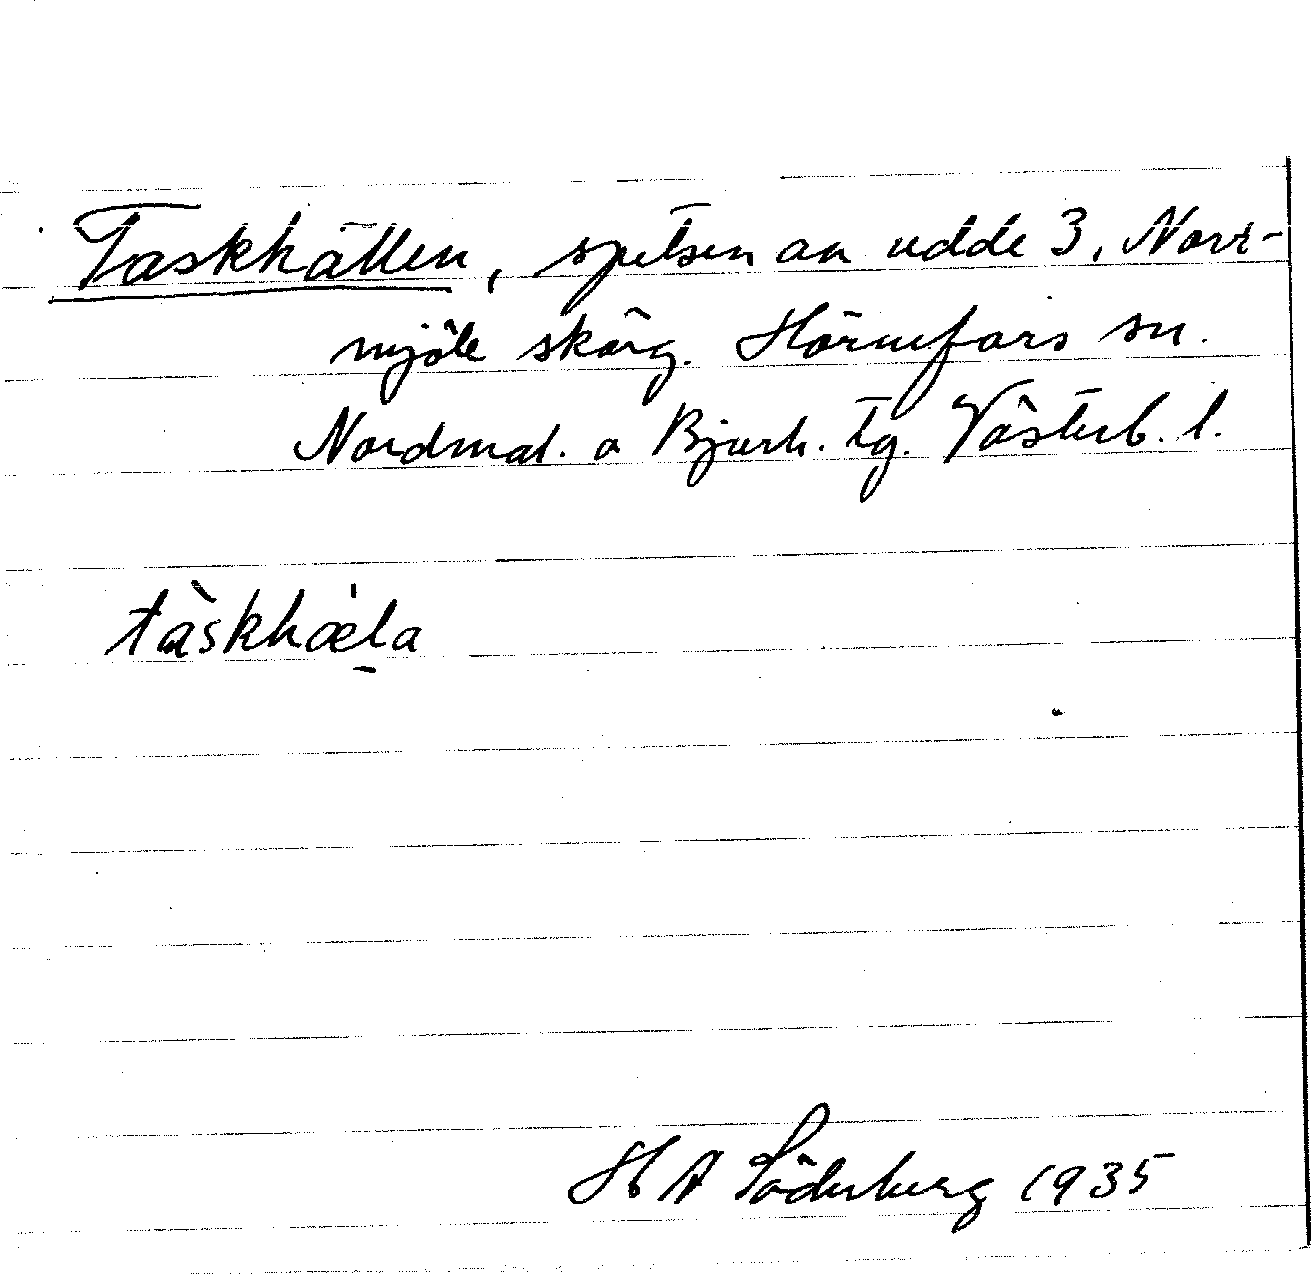 Taskhällen, spetsen av udde 3, Norr-
mjöle skärg. Hörnefors sn.
Nordmal. o Bjurh. tg. Västerb. l.
tàskhæ̀la
H A Söderberg 1935